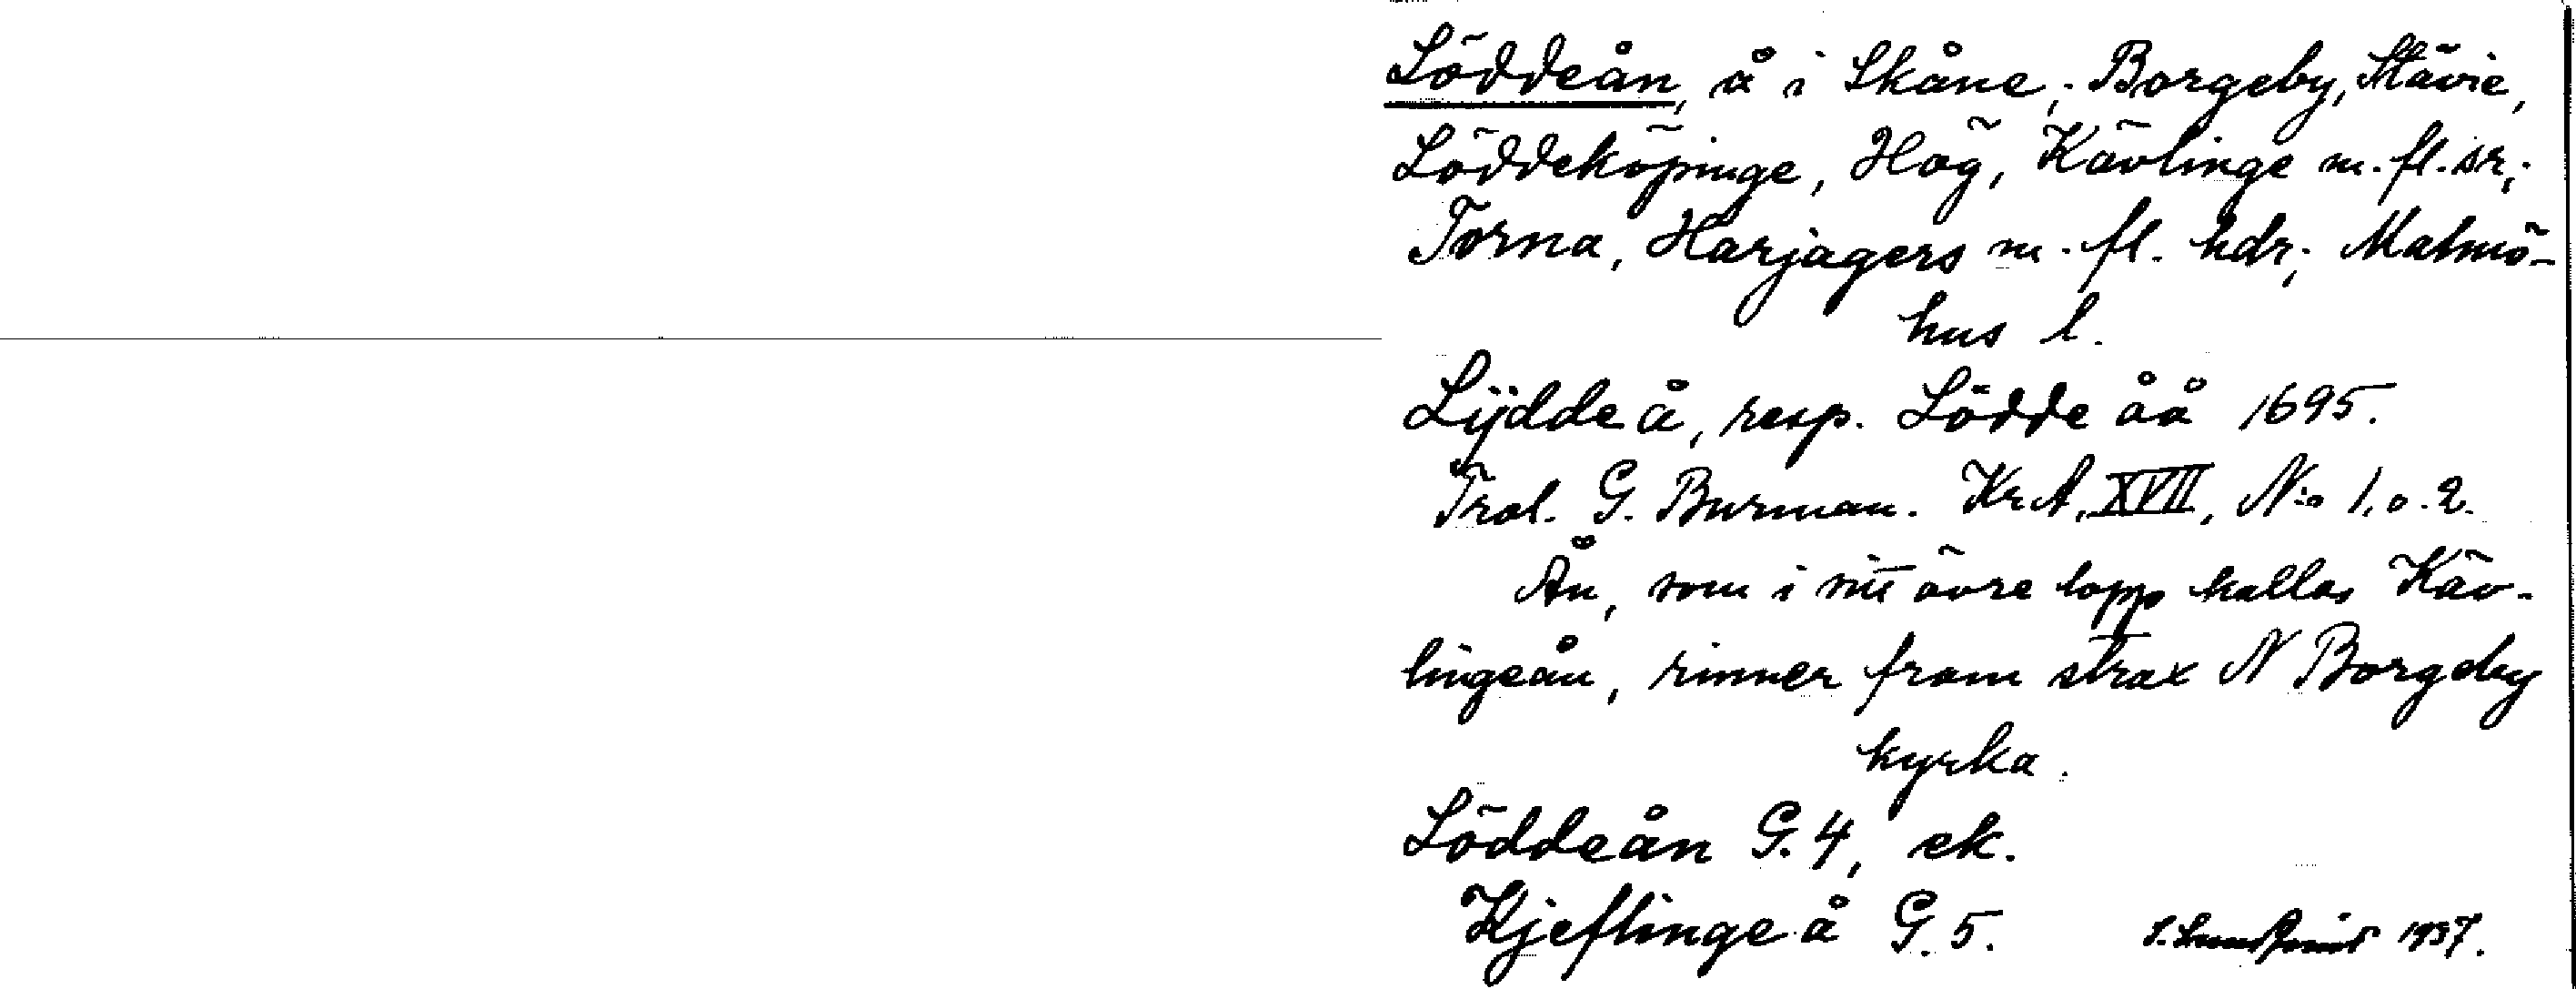 Löddeån, å i Skåne; Borgeby, Stävie,
Löddeköpinge, Hög, Kävlinge m. fl. sr;
Torna, Harjagers m. fl. hdr; Malmö-
hus l.
Lÿdde å, resp. Lödde åå 1695.
G. Burman. Kr.A, XVII, N:o 1, o. 2.
Ån, som i sitt övre lopp kallas Käv-
lingeån, rinner fram strax N Borgeby
kyrka.
Löddeån G. 4, ek.
Kjeflinge å G. 5.
1937.